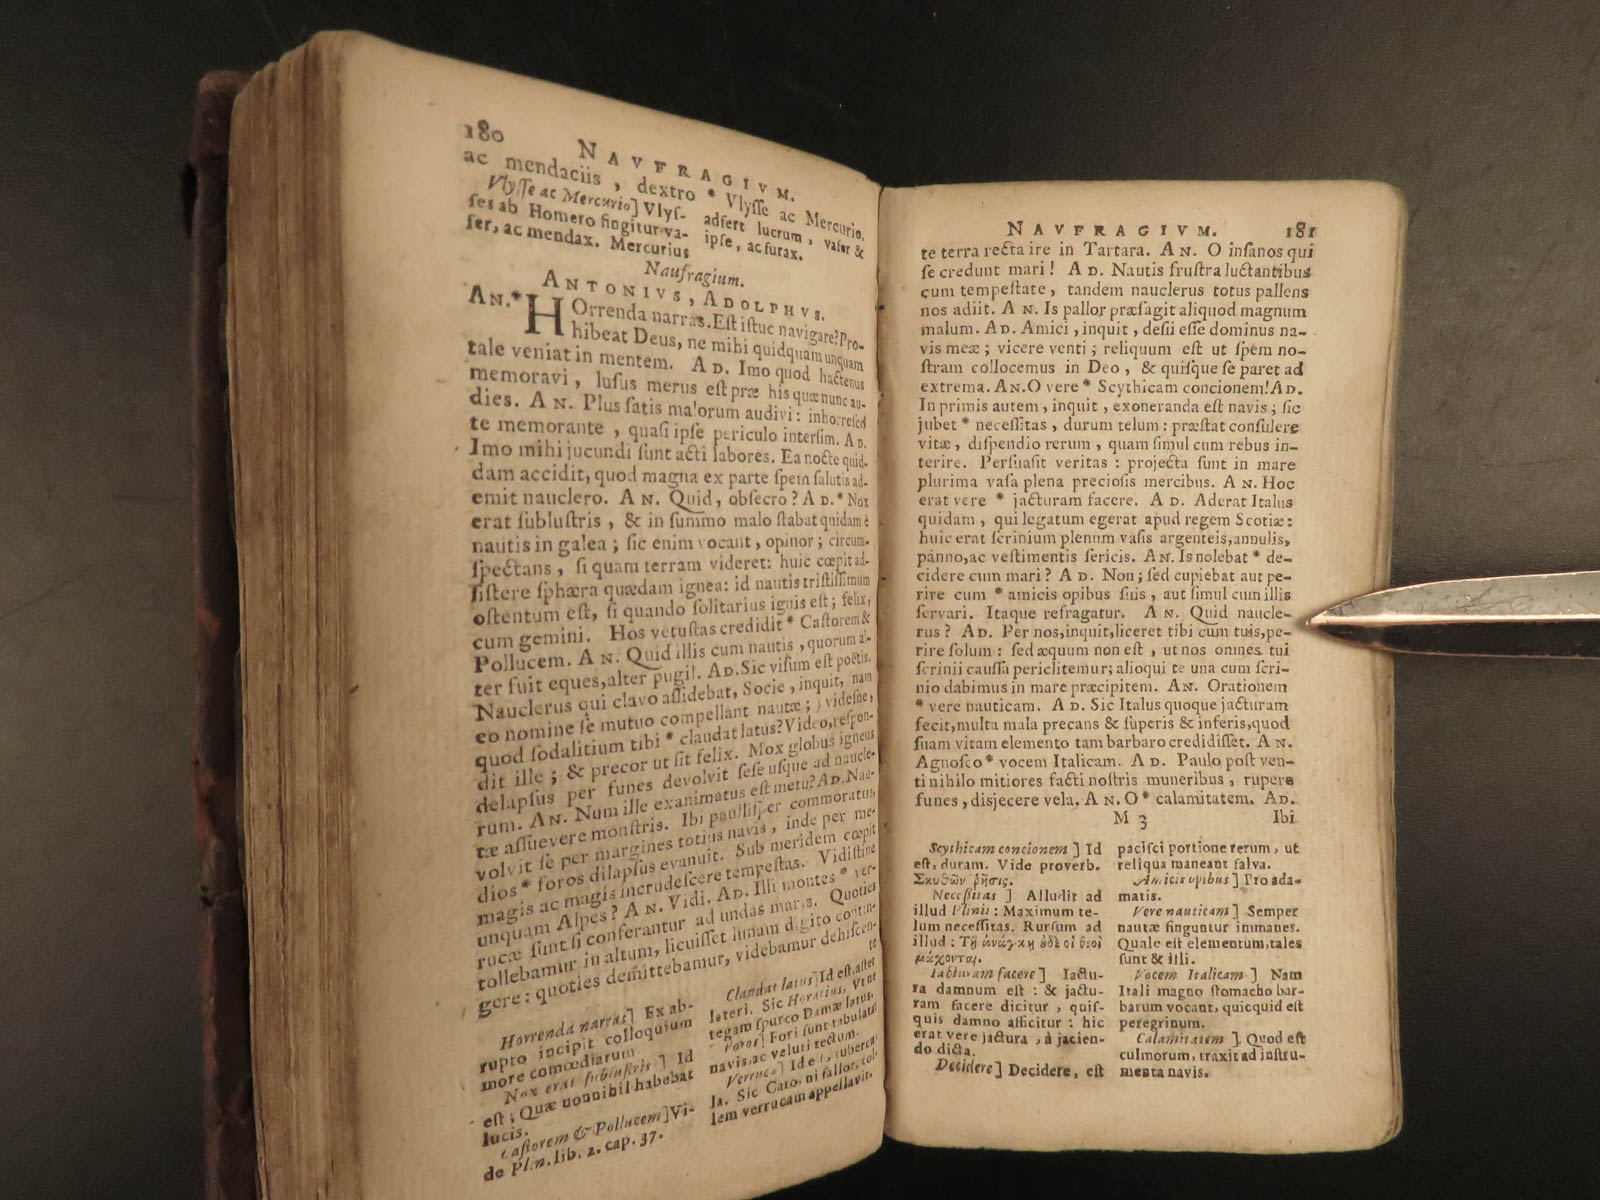 180 NAVFRAGIVM.
ac mendaciis, dextro * Vlyſſe ac Mercurio.
Vlyſſe ac Mercurio] Vlyſ-
ſes ab Homero fingitur va-
fer, ac mendax. Mercurius
adfert lucrum, vafer &
ipſe, ac furax.
Naufragium.
ANTONIVS, ADOLPHVS.
AN.* HOrrenda narras. Eſt iſtuc navigare? Pro-
hibeat Deus, ne mihi quidquam unquam
tale veniat in mentem. AD. Imo quod hactenus
memoravi, luſus merus eſt præ his quæ nunc au-
dies. AN. Plus ſatis malorum audivi: inhorreſco
te memorante, quaſi ipſe periculo interſim. AD.
Imo mihi jucundi ſunt acti labores. Ea nocte quid-
dam accidit, quod magna ex parte ſpem ſalutis ad-
emit nauclero. AN. Quid, obſecro? AD.* Nox
erat ſubluſtris, & in ſummo malo ſtabat quidam è
nautis in galea; ſic enim vocant, opinor; circum-
ſpectans, ſi quam terram videret: huic cœpit ad-
ſiſtere ſphæra quædam ignea: id nautis triſtiſſimum
oſtentum eſt, ſi quando ſolitarius ignis eſt; felix,
cum gemini. Hos vetuſtas credidit * Caſtorem &
Pollucem. AN. Quid illis cum nautis, quorum al-
ter fuit eques, alter pugil. AD. Sic viſum eſt poëtis.
Nauclerus qui clavo aſſidebat, Socie, inquit, nam
eo nomine ſe mutuo compellant nautæ;) videſne,
quod ſodalitium tibi * claudat latus? Video, reſpon-
dit ille; & precor ut ſit felix. Mox globus igneus
delapſus per funes devolvit ſeſe uſque ad naucle-
rum. AN. Num ille exanimatus eſt metu? AD. Nau-
tæ aſſuevere monſtris. Ibi pauliſper commoratus,
volvit ſe per margines totius navis, inde per me-
dios * foros dilapſus evanuit. Sub meridem cœpit
magis ac magis incrudeſcere tempeſtas. Vidiſtine
unquam Alpes? AN. Vidi. AD. Illi montes * ver-
rucæ ſunt ſi conferantur ad undas maris. Quoties
tollebamur in altum, licuiſſet lunam digito contin-
gere: quoties demittebamur, videbamur dehiſcen-
te
Horrenda narras] Ex ab-
rupto incipit colloquium
more comœdiarum
Nox erat ſubluſtris] Id
eſt; Quæ nonnihil habebat
lucis.
Caſtorem & Pollucem] Vi-
de Plin. lib. 2. cap. 37.
Claudat latus] Id eſt, aſtet
lateri. Sic Horatius, Vt ne
tegam ſpurco Damæ latus.
Foros] Fori ſunt tabulata
navis, ac veluti tectum.
Verruca] Id eſt, tubercu-
la. Sic Cato, ni fallor, col-
lem verrucam appellavit.
NAVFRAGIVM. 181
te terra recta ire in Tartara. AN. O inſanos qui
ſe credunt mari! AD. Nautis fruſtra luctantibus
cum tempeſtate, tandem nauclerus totus pallens
nos adiit. AN. Is pallor præſagit aliquod magnum
malum. AD. Amici, inquit, deſii eſſe dominus na-
vis meæ; vicere venti; reliquum eſt ut ſpem no-
ſtram collocemus in Deo, & quiſque ſe paret ad
extrema. AN. O vere * Scythicam concionem! AD.
In primis autem, inquit, exoneranda eſt navis; ſic
jubet * neceſſitas, durum telum: præſtat conſulere
vitæ, diſpendio rerum, quam ſimul cum rebus in-
terire. Perſuaſit veritas: projecta ſunt in mare
plurima vaſa plena precioſis mercibus. AN. Hoc
erat vere * jacturam facere. AD. Aderat Italus
quidam, qui legatum egerat apud regem Scotiæ:
huic erat ſcrinium plenum vaſis argenteis, annulis,
panno, ac veſtimentis ſericis. AN. Is nolebat * de-
cidere cum mari? AD. Non; ſed cupiebat aut pe-
rire cum * amicis opibus ſuis, aut ſimul cum illis
ſervari. Itaque refragatur. AN. Quid naucle-
rus? AD. Per nos, inquit, liceret tibi cum tuis, pe-
rire ſolum: ſed æquum non eſt, ut nos omnes tui
ſcrinii cauſſa periclitemur; alioqui te una cum ſcri-
nio dabimus in mare præcipitem. AN. Orationem
* vere nauticam. AD. Sic Italus quoque jacturam
fecit, multa mala precans & ſuperis & inferis, quod
ſuam vitam elemento tam barbaro credidiſſet. AN.
Agnoſco * vocem Italicam. AD. Paulo poſt ven-
ti nihilo mitiores facti noſtris muneribus, rupere
funes, disjecere vela. AN. O * calamitatem. AD.
M 3 Ibi
Scythicam concionem] Id
eſt, duram. Vide proverb.
Σκυθῶν ῥῆσις.
Neceſſitas] Alludit ad
illud Plinii: Maximum te-
lum neceſſitas. Rurſum ad
illud: Τῇ ἀνάγκῃ ἐδὲ οἱ θεοὶ
μάχονται.
Iacturam facere] Iactu-
ra damnum eſt: & jactu-
ram facere dicitur, quiſ-
quis damno afficitur: hic
erat vere jactura, à jacien-
do dicta.
Decidere] Decidere, eſt
paciſci portione rerum, ut
reliqua maneant ſalva.
Amicis opibus] Pro ada-
matis.
Vere nauticam] Semper
nautæ finguntur immanes.
Quale eſt elementum, tales
ſunt & illi.
Vocem Italicam] Nam
Itali magno ſtomacho bar-
barum vocant, quicquid eſt
peregrinum.
Calamitatem]. Quod eſt
culmorum, traxit ad inſtru-
menta navis.